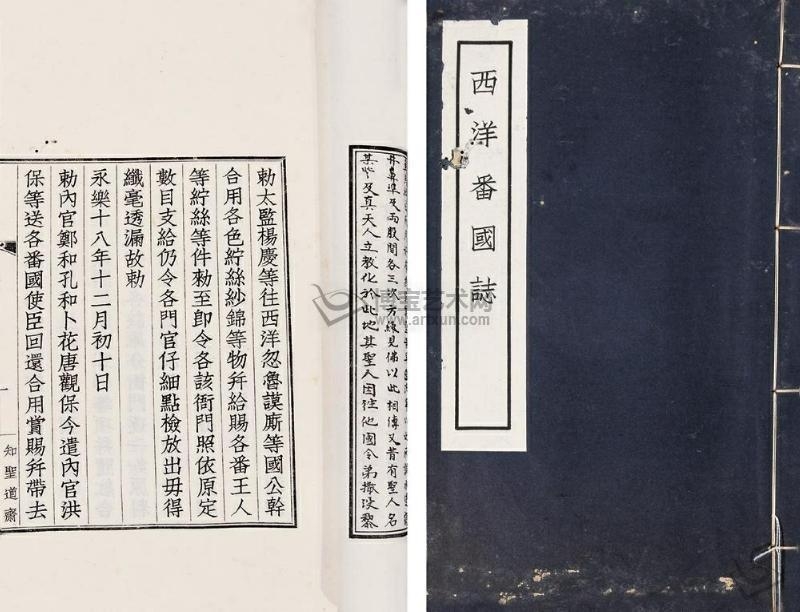 西洋番國誌
勅太監楊慶等往西洋忽魯謨厮等國公幹
合用各色紵絲紗錦等物并給賜各番王人
等紵絲等件勅至即令各該衙門照依原定
數目支給仍令各門官仔細點檢放出毋得
纖毫透漏故勅
永樂十八年十二月初十日
勅內官鄭和孔和卜花唐觀保今遣內官洪
保等送各番國使臣回還合用賞賜并帶去
知聖道齋
鼻準及兩股間各三次方緣見佛以此相傳又昔有聖人名
某 及真天人立教化於此地其聖人因往他國令弟撒沒黎
博宝艺术网
www.artxun.com